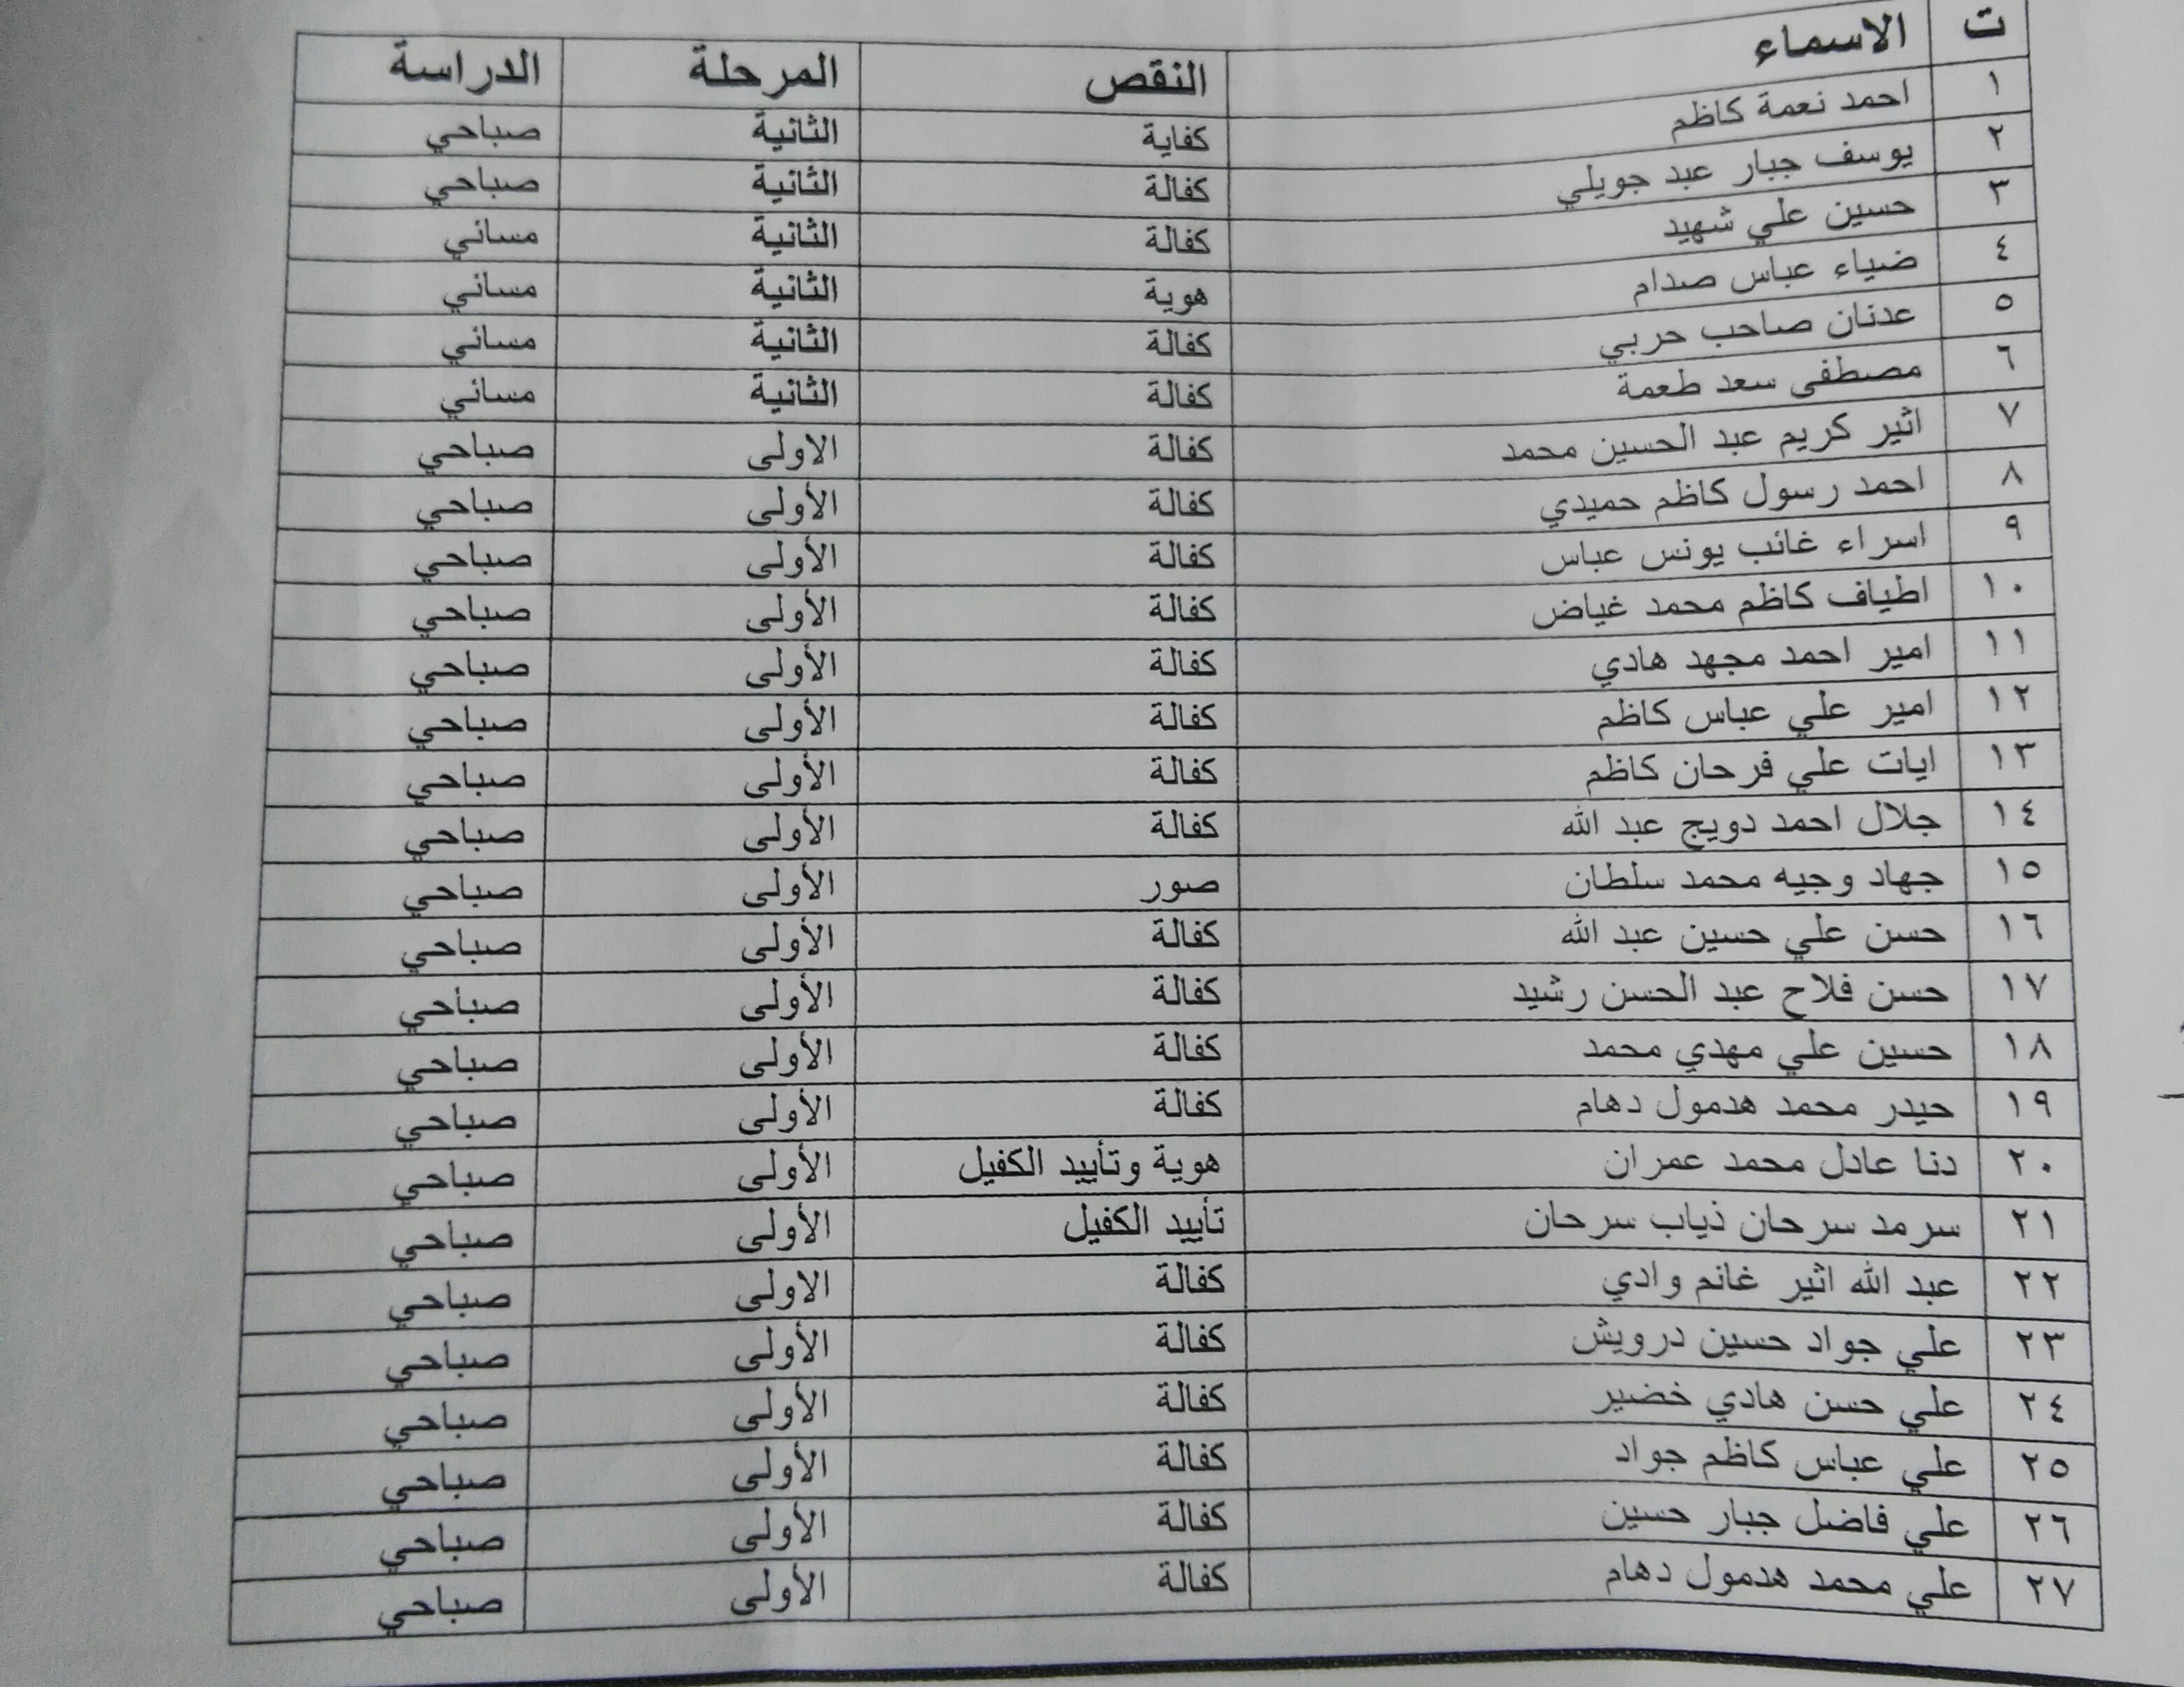 ت الاسماء النقص المرحلة الدراسة
١ احمد نعمة كاظم كفاية الثانية صباحي
٢ يوسف جبار عبد جويلي كفالة الثانية صباحي
٣ حسين علي شهيد كفالة الثانية مسائي
٤ ضياء عباس صدام هوية الثانية مسائي
٥ عدنان صاحب حربي كفالة الثانية مسائي
٦ مصطفى سعد طعمة كفالة الثانية مسائي
٧ اثير كريم عبد الحسين محمد كفالة الاولى صباحي
٨ احمد رسول كاظم حميدي كفالة الأولى صباحي
٩ اسراء غائب يونس عباس كفالة الأولى صباحي
١٠ اطياف كاظم محمد غياض كفالة الأولى صباحي
١١ امير احمد مجهد هادي كفالة الأولى صباحي
١٢ امير علي عباس كاظم كفالة الأولى صباحي
١٣ ايات علي فرحان كاظم كفالة الأولى صباحي
١٤ جلال احمد دويج عبد الله كفالة الأولى صباحي
١٥ جهاد وجيه محمد سلطان صور الأولى صباحي
١٦ حسن علي حسين عبد الله كفالة الأولى صباحي
١٧ حسن فلاح عبد الحسن رشيد كفالة الأولى صباحي
١٨ حسين علي مهدي محمد كفالة الأولى صباحي
١٩ حيدر محمد هدمول دهام كفالة الأولى صباحي
٢٠ دنا عادل محمد عمران هوية وتأييد الكفيل الأولى صباحي
٢١ سرمد سرحان ذياب سرحان تأييد الكفيل الأولى صباحي
٢٢ عبد الله اثير غانم وادي كفالة الاولى صباحي
٢٣ علي جواد حسين درويش كفالة الأولى صباحي
٢٤ علي حسن هادي خضير كفالة الأولى صباحي
٢٥ علي عباس كاظم جواد كفالة الأولى صباحي
٢٦ علي فاضل جبار حسين كفالة الأولى صباحي
٢٧ علي محمد هدمول دهام كفالة الأولى صباحي